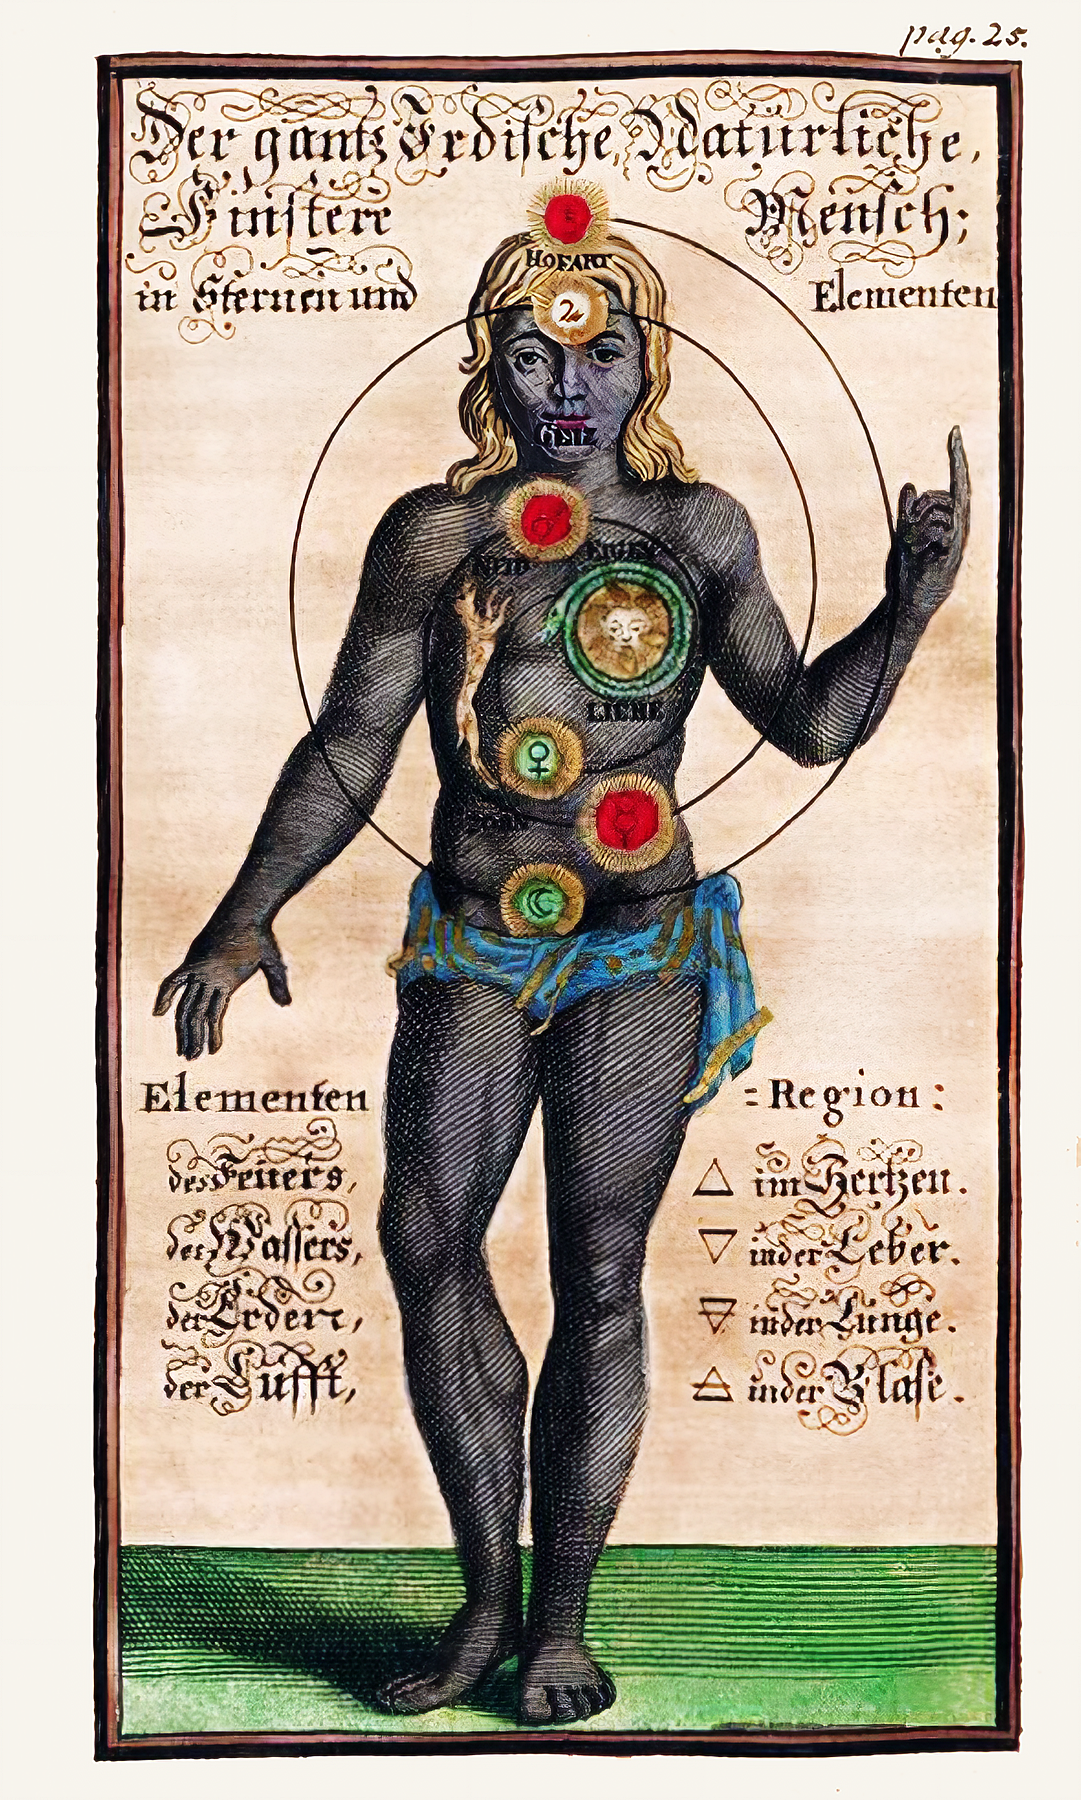 pag. 25.
Der gantz Irdische, Natürliche,
Finstere Mensch;
in Sternen und Elementen
HOFART
GEIZ
NEID
EIGEN
LIEBE
ZORN
Elementen = Region:
des Feüers, △ im Hertzen.
des Wassers, ▽ in der Leber.
der Erden, 🜃 in der Lunge.
der Lufft, 🜁 in der Blase.